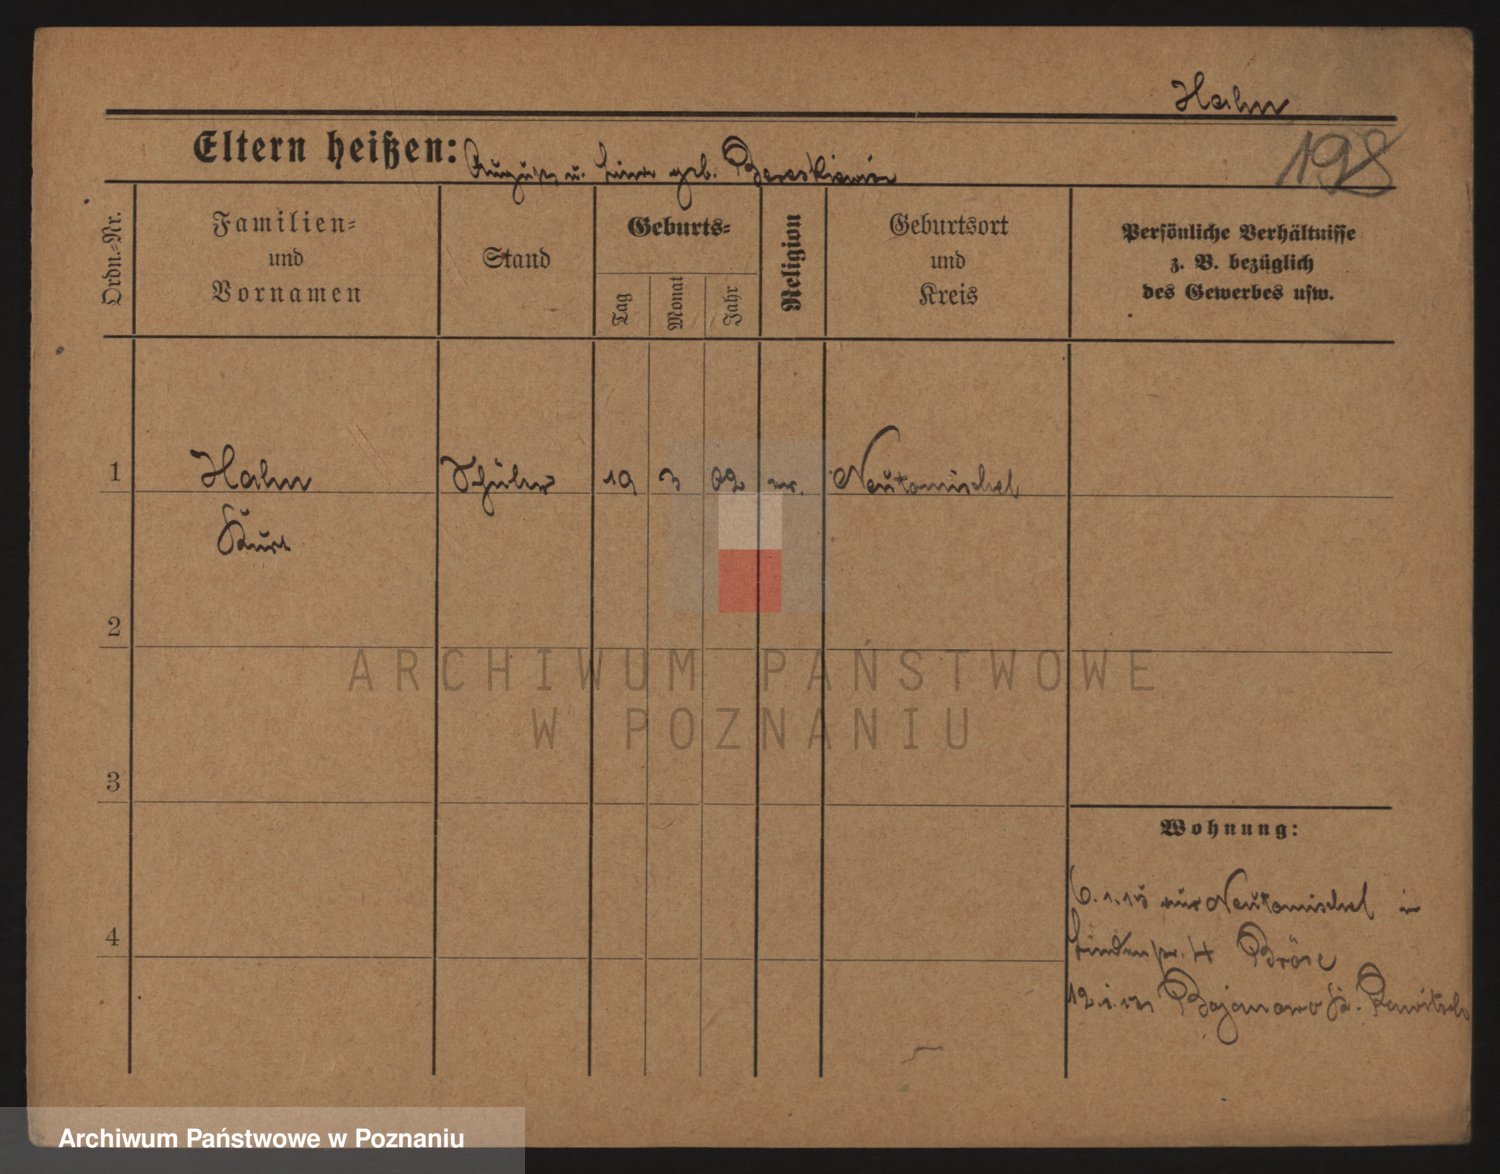 Hahn
198
Eltern heißen: August u. geb.
Ordn.=Nr.
Familien=
und
Vornamen
Stand
Geburts=
Tag
Monat
Jahr
Religion
Geburtsort
und
Kreis
Persönliche Verhältnisse
z. B. bezüglich
des Gewerbes usw.
1 Hahn Schüler 19 3 02 ev. Neutomischel
Kurt
2
ARCHIWUM PAŃSTWOWE
W POZNANIU
3
Wohnung:
6. 1. 15 aus Neutomischel in
4 Lindenstr. 4 Bröse
12. Bojanowo K. Rawitsch
Archiwum Państwowe w Poznaniu